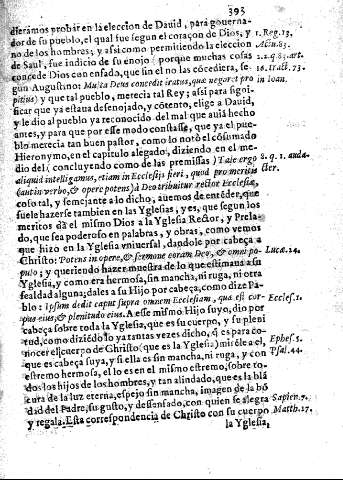 393
dieramos probar en la eleccion de Dauid, para gouerna-
dor de su pueblo, el qual fue segun el coraçon de Dios, y 1. Reg. 13.
no de los hombres; y assi como permitiendo la eleccion Act. 83.
de Saul, fue indicio de su enojo (porque muchas cosas 2. q. 83. art.
concede Dios con enfado, que sin el no las cõcediera, se- 16. tract. 73.
gun Augustino: Multa Deus concedit iratus, quæ negaret pro in Ioan.
pitius) y que tal pueblo, merecia tal Rey; assi para signi-
ficar que ya estaua desenojado, y cõtento, elige a Dauid,
y le dio al pueblo ya reconocido del mal que auiá hecho
antes, y para que por esse modo constasse, que ya el pue-
blo merecia tan buen pastor, como lo notó el consumado
Hieronymo, en el capitulo alegado, diziendo en el me-
dio del (concluyendo como de las premissas) Tale ergo 8. q. 1. auda-
aliquid intelligamus, etiam in Ecclesijs fieri, quod pro meritis cter.
(tantin verbo, & opere potens) à Deo tribuitur rector Ecclesiæ,
coso tal, y semejante a lo dicho, auemos de entéder, que
suele hazerse tambien en las Yglesias, y es, que segun los
meritos dá el mismo Dios a la Yglesia Rector, y Prela-
do, que sea poderoso en palabras, y obras, como vemos
que hizo en la Yglesia vniuersal, dandole por cabeça a
Christo: Potens in opere, & sermone coram Deo, & omni po- Lucæ. 24.
pulo; y queriendo hazer muestra de lo que estimaua a su
Yglesia, y como era hermosa, sin mancha, ni ruga, ni otra
fealdad alguna; dales a su Hijo por cabeça, como dize Pa-
blo: Ipsum dedit caput supra omnem Ecclesiam, quæ est cor- Ecclesi. 1.
pus eius, & plenitudo eius. A esse mismo Hijo suyo, dio por
cabeça sobre toda la Yglesia, que es su cuerpo, y su pleni
tud, como diziédo lo ya tantas vezes dicho, q̃ es para co-
nocer el cuerpo de Christo (que es la Yglesia) mirele a el, Ephes. 5.
que es cabeça suya, y si ella es sin mancha, ni ruga, y con Psal. 44.
estremo hermosa, el lo es en el mismo estremo, sobre to-
dos los hijos de los hombres, y tan alindado, que es la blã
cura de la luz eterna, espejo sin mancha, imagen de la bõ
dad del Padre, su gusto, y descansado, con quien se alegra Sapien. 7.
y regala. Esta correspondencia de Christo con su cuerpo Matth. 17.
la Yglesia,